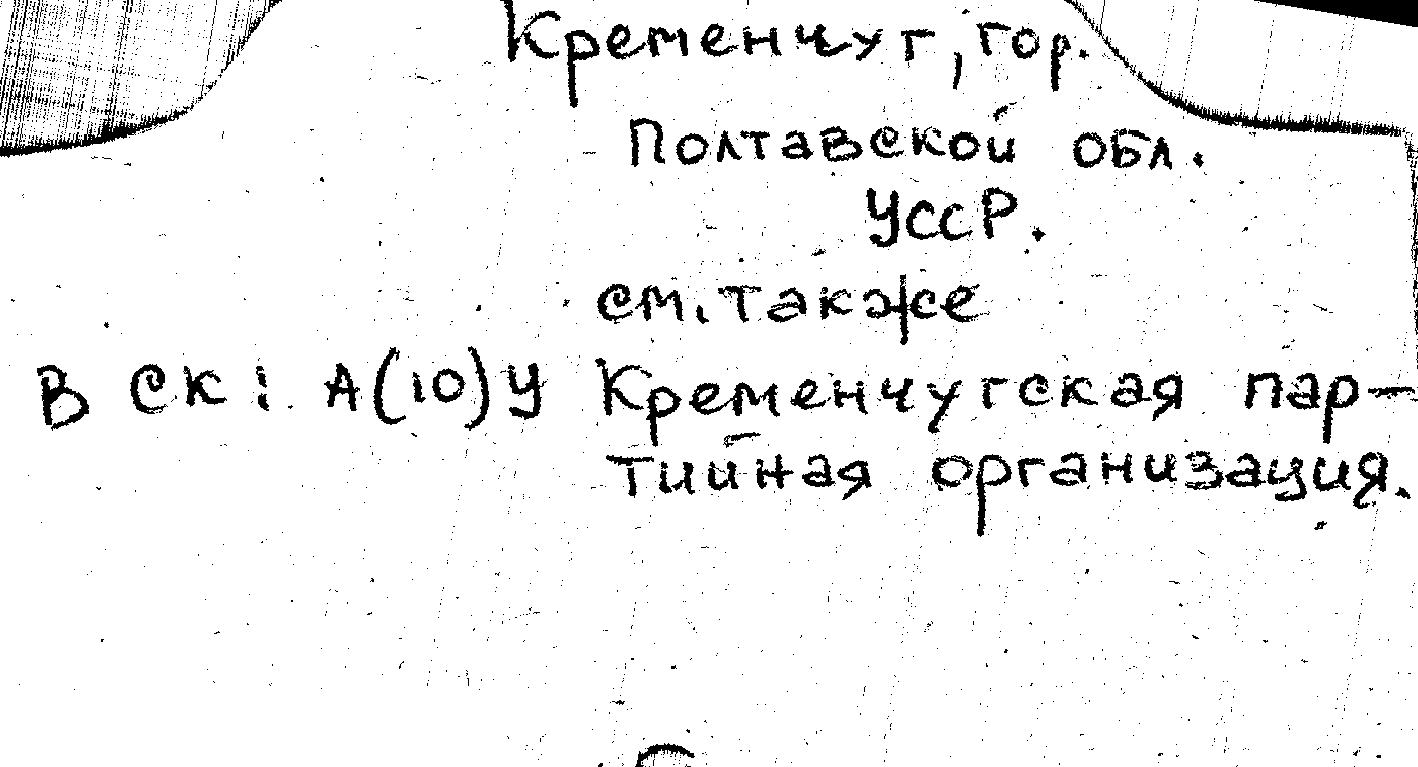 Кременчуг, гор.
Полтавской обл.
УССР.
см. также
В СК: А(10)У Кременчугская пар-
тийная организация.